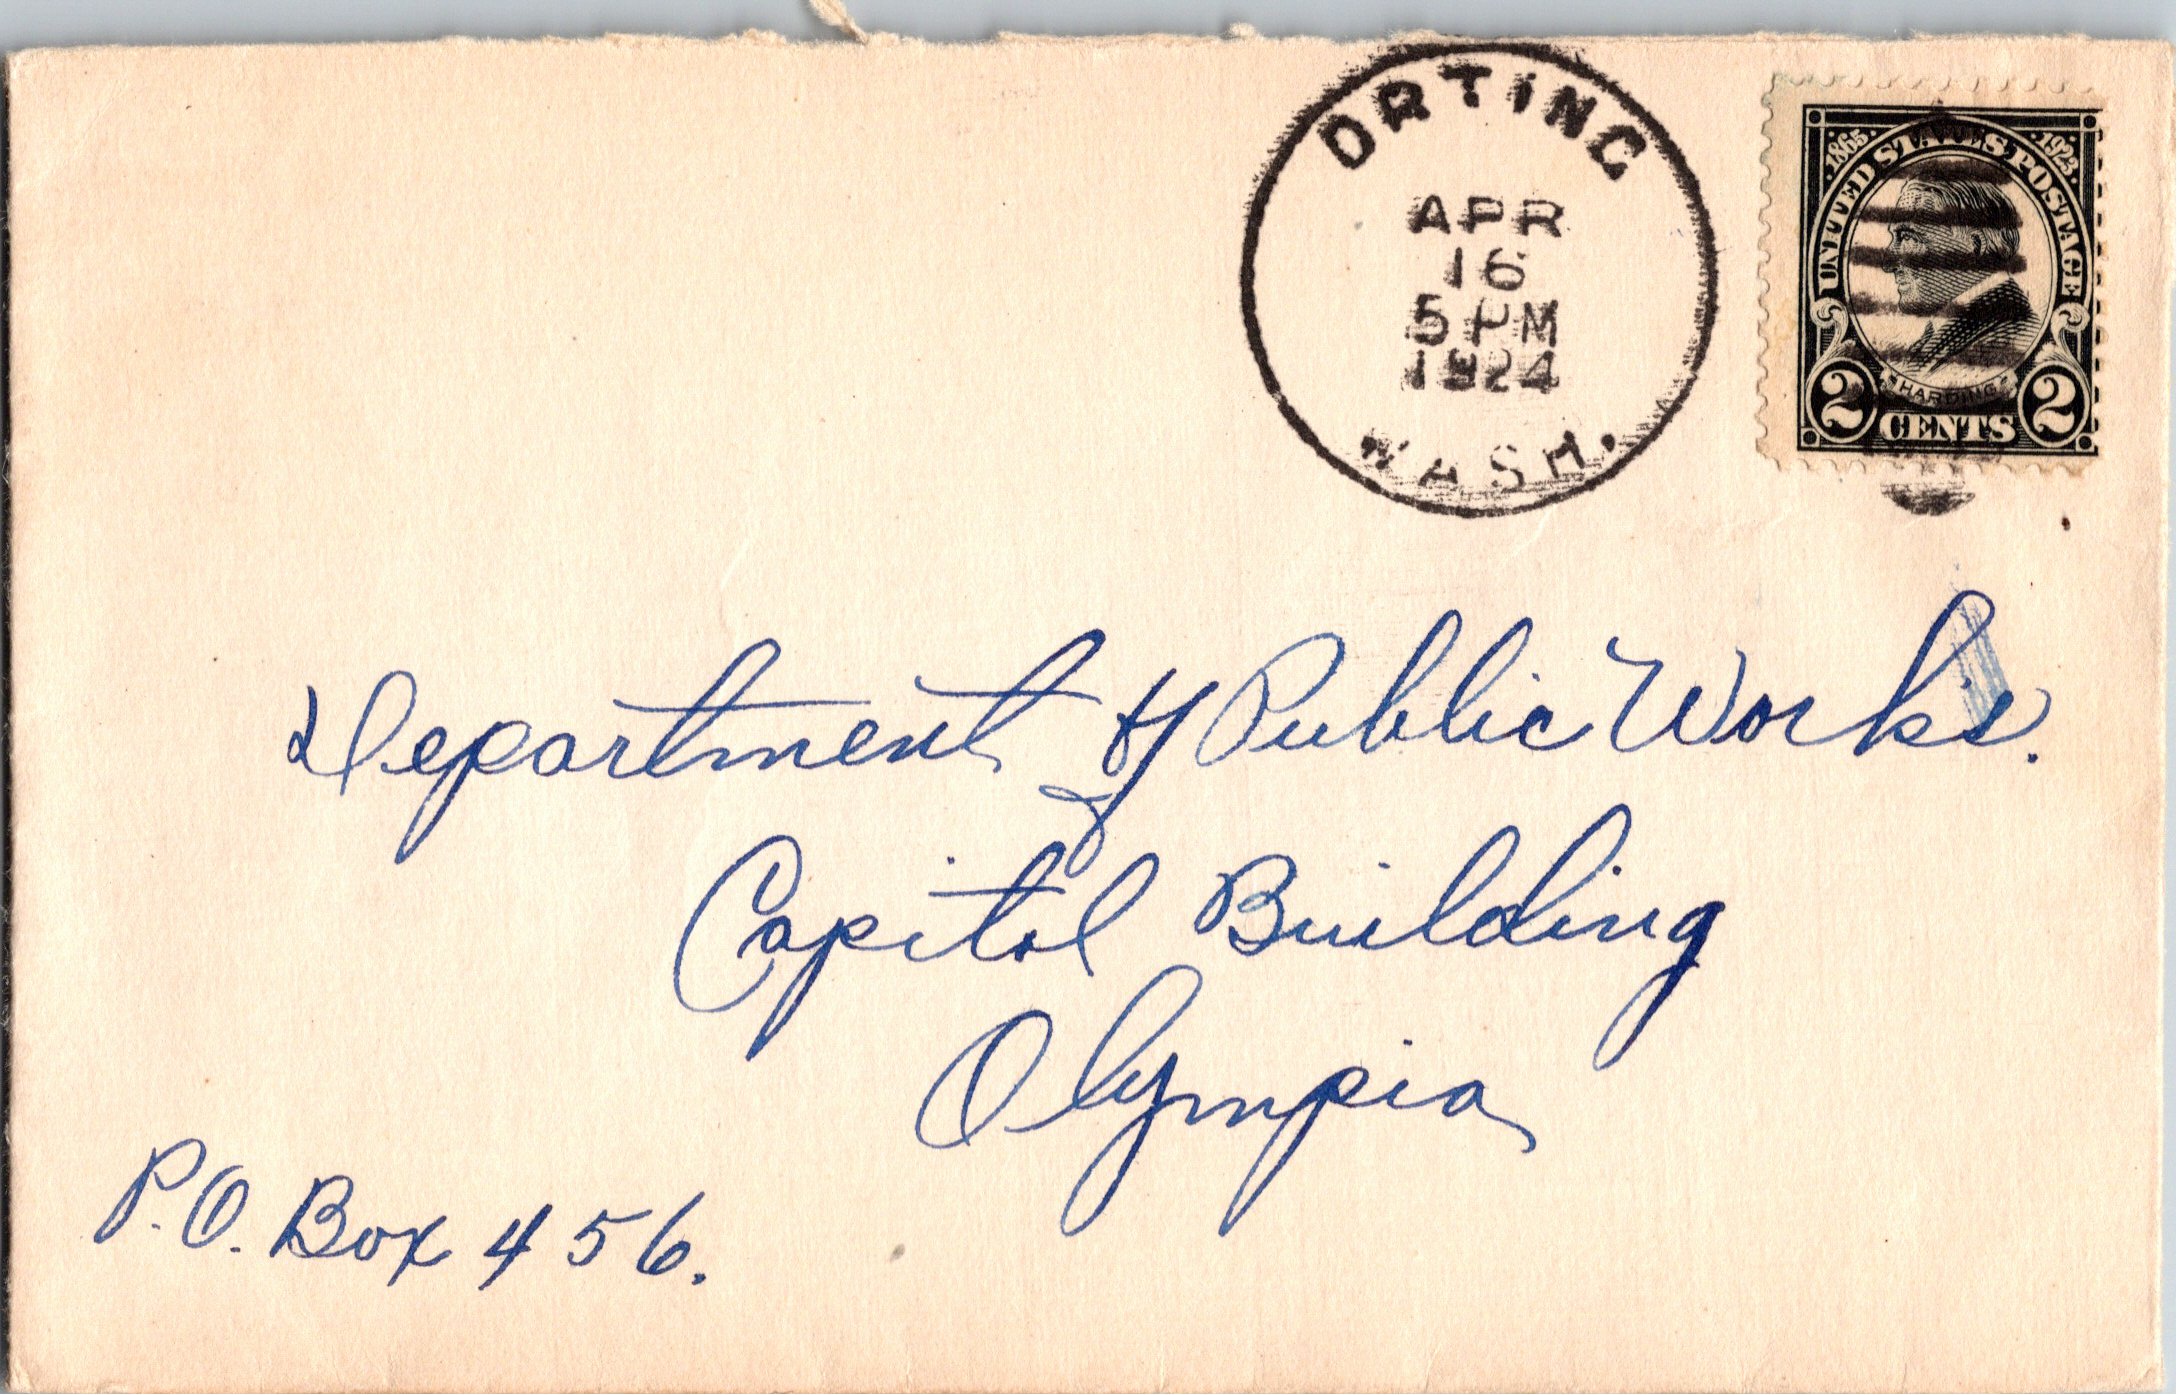 ORTING
APR
16
5 PM
1924
WASH.
1865 UNITED STATES POSTAGE 1923
HARDING
2 CENTS 2
Department of Public Works.
Capitol Building
Olympia
P.O. Box 456.